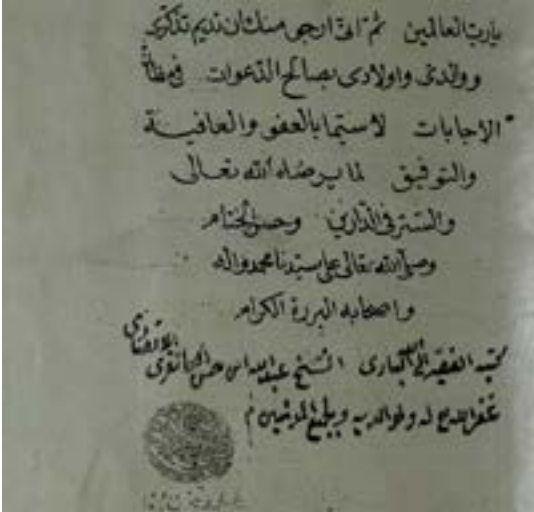 يارب العالمين ثم انى ارجو منك ان تديم تذكرى
ووالدى واولادى بصالح الدعوات فى مظان
الاجابات لاسيما بالعفو والعافية
والتوفيق لما يرضاه الله تعالى
والستر فى الدارين وحسن الختام
وصلى الله تعالى على سيدنا محمد واله
واصحابه البررة الكرام
كتبه الفقير الى البارى الشيخ عبدالله ابن حسن
غفر الله له ولوالديه ولجميع المؤمنين م